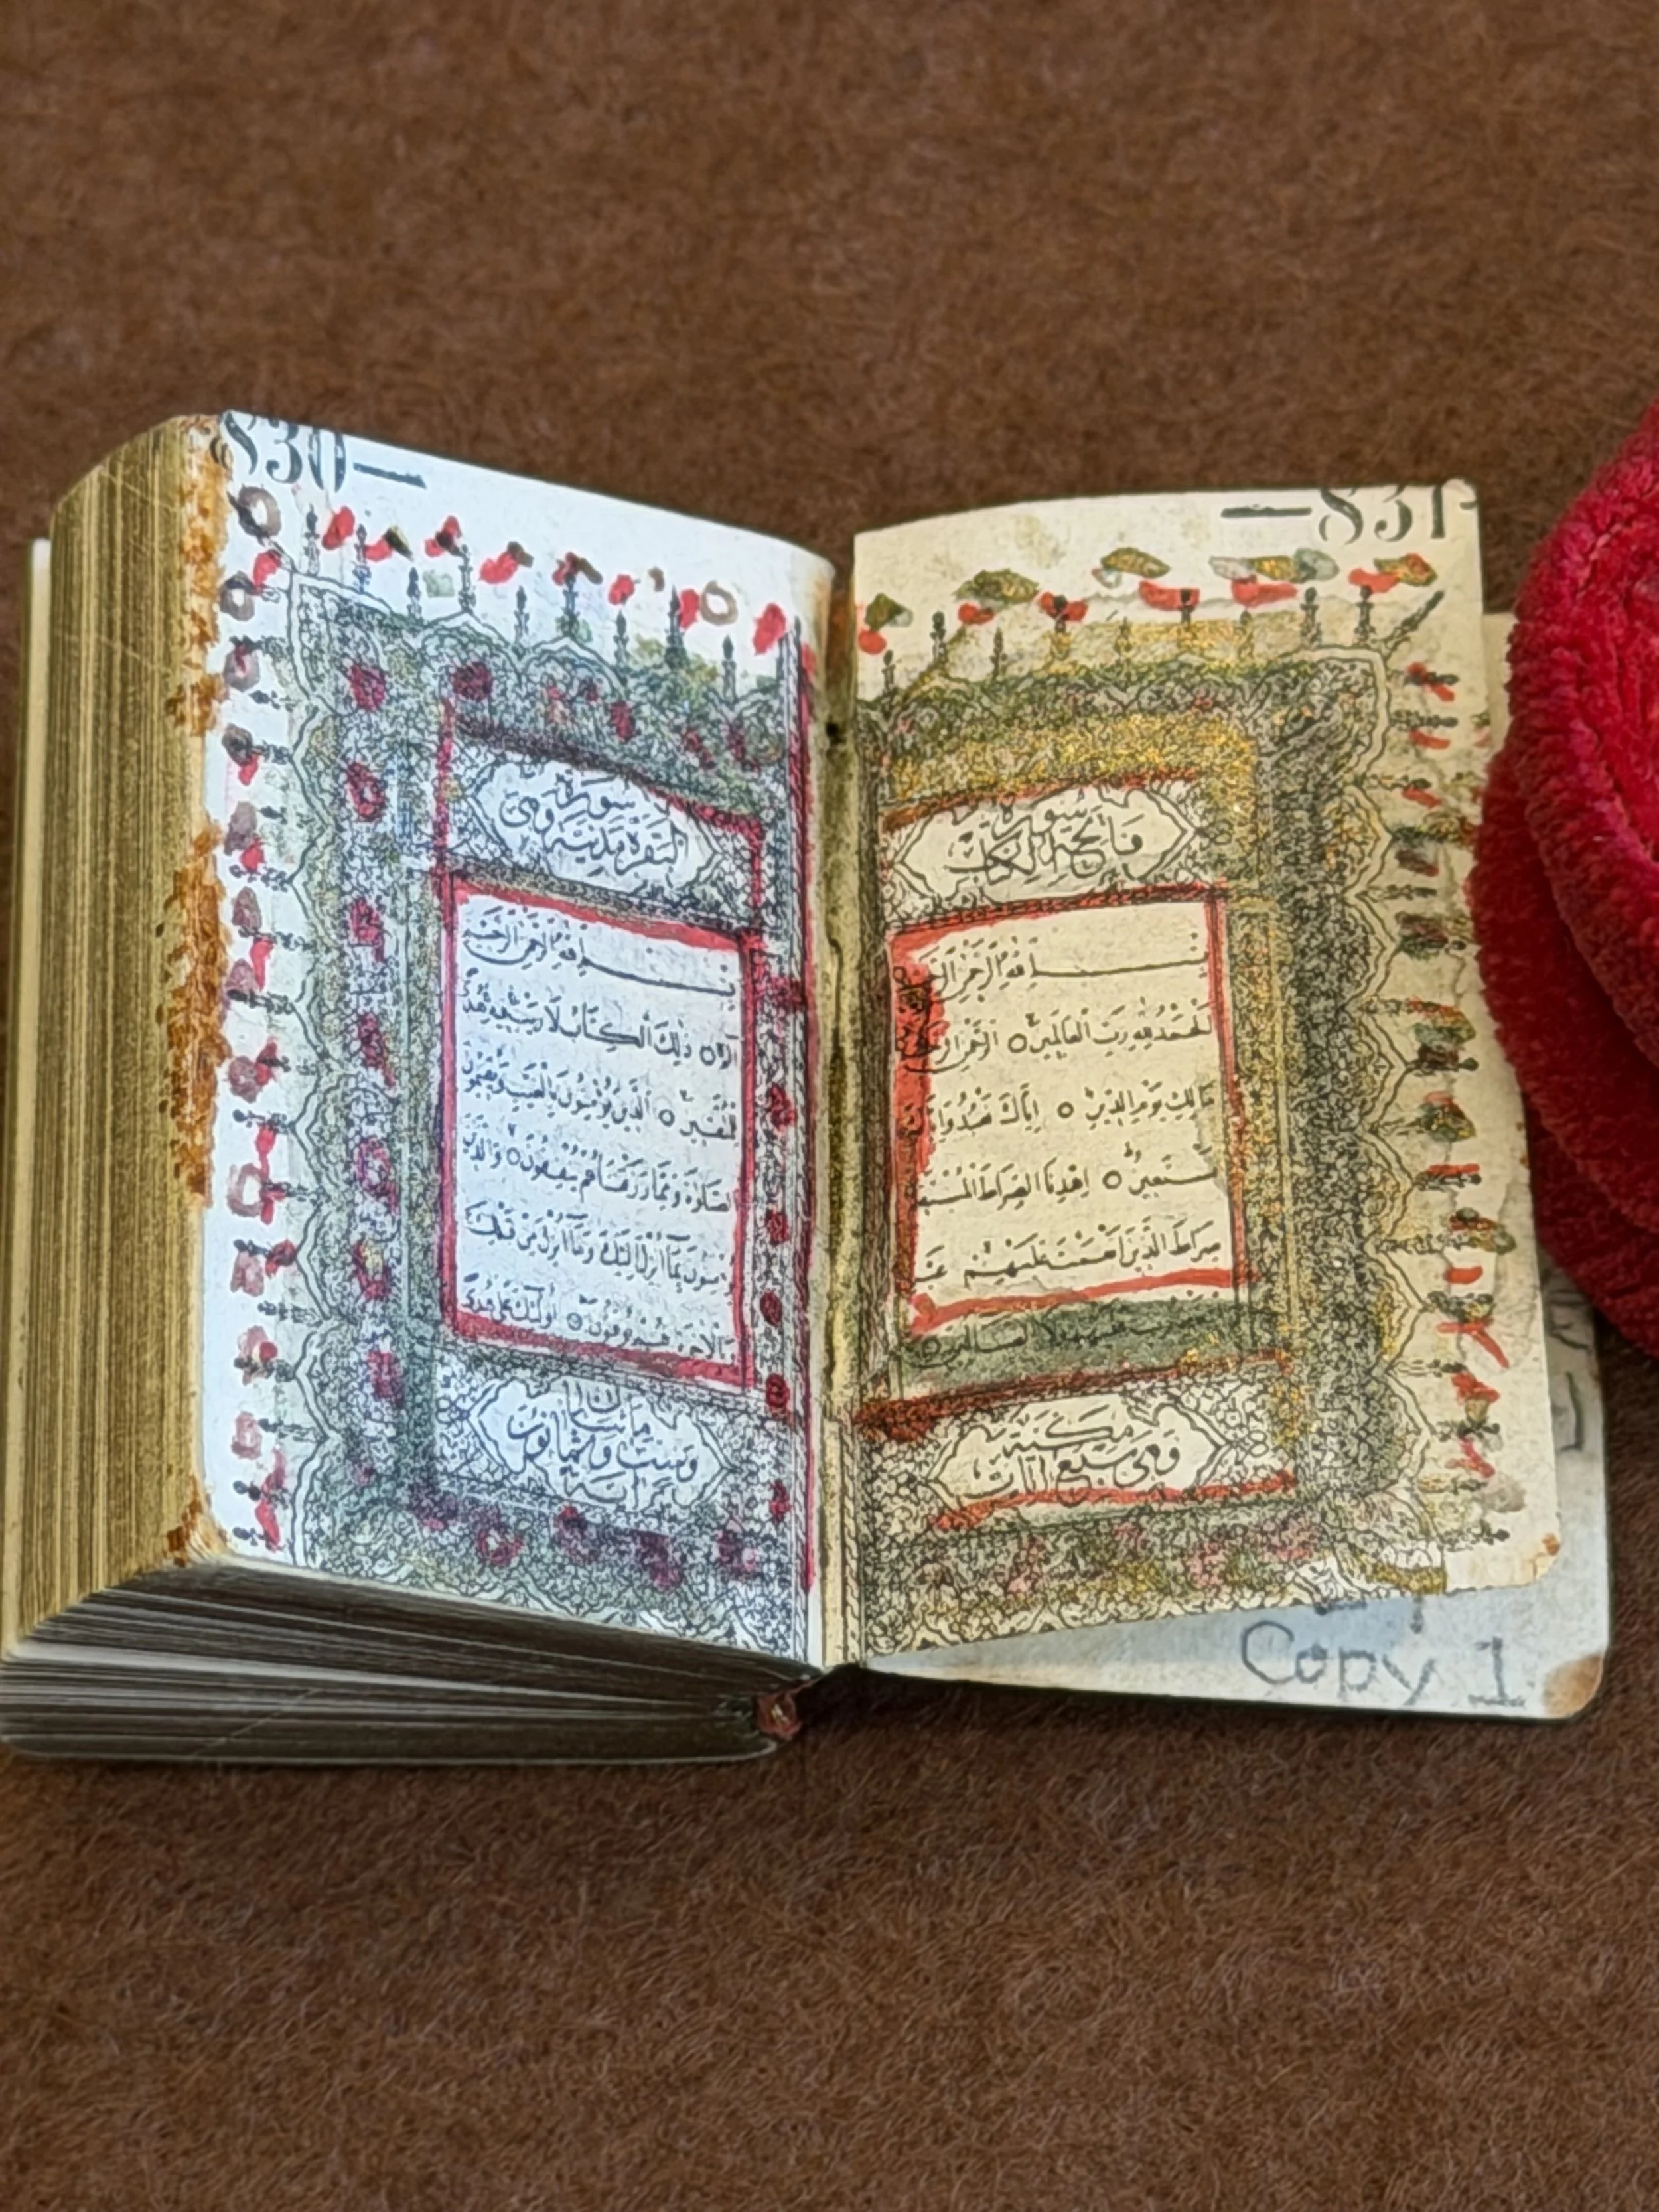 —831
سورة
فاتحة الكتاب
بسم الله الرحمن الرحيم
الحمد لله رب العالمين ○ الرحمن الرحيم
مالك يوم الدين ○ اياك نعبد واياك
نستعين ○ اهدنا الصراط المستقيم
صراط الذين انعمت عليهم غير
عليهم ولا الضالين ○
مكية
وهى سبع ايات
830—
سورة
البقرة مدنية وهى
بسم الله الرحمن الرحيم
الم ○ ذلك الكتاب لا ريب فيه هدى
للمتقين ○ الذين يؤمنون بالغيب ويقيمون
الصلوة ومما رزقناهم ينفقون ○ والذين
يؤمنون بما انزل اليك وما انزل من قبلك
وبالاخرة هم يوقنون ○ اولئك على هدى
مائتان
وست وثمانون
اية
Copy 1